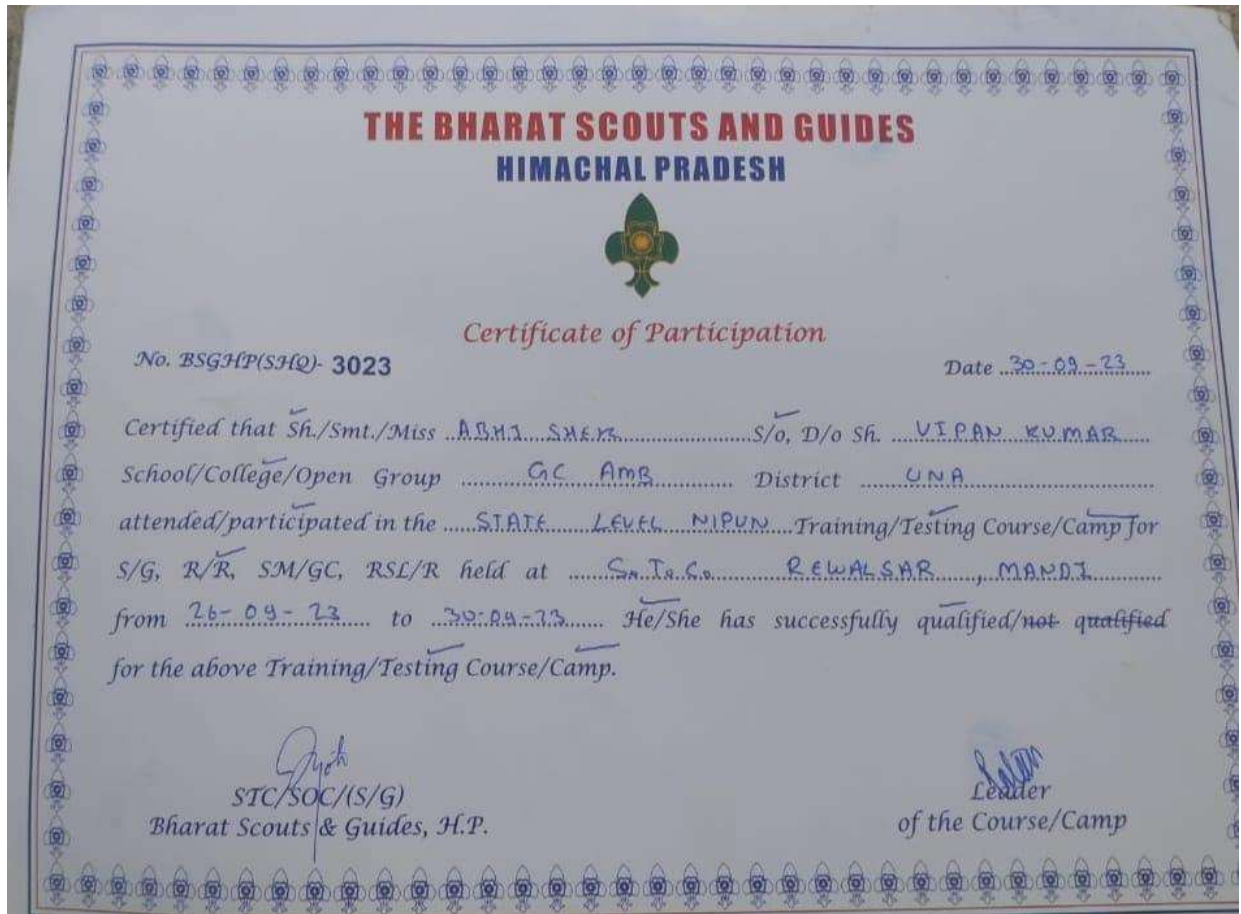 THE BHARAT SCOUTS AND GUIDES
HIMACHAL PRADESH
Certificate of Participation
No. BSGHP(SHQ)- 3023 Date 30-09-23
Certified that Sh./Smt./Miss ABHI SHEK S/o, D/o Sh. VIPAN KUMAR
School/College/Open Group GC AMB District UNA
attended/participated in the STATE LEVEL NIPUN Training/Testing Course/Camp for
S/G, R/R, SM/GC, RSL/R held at S.T.C. REWALSAR, MANDI
from 26-09-23 to 30-09-23 He/She has successfully qualified/not qualified
for the above Training/Testing Course/Camp.
STC/SOC/(S/G) Leader
Bharat Scouts & Guides, H.P. of the Course/Camp